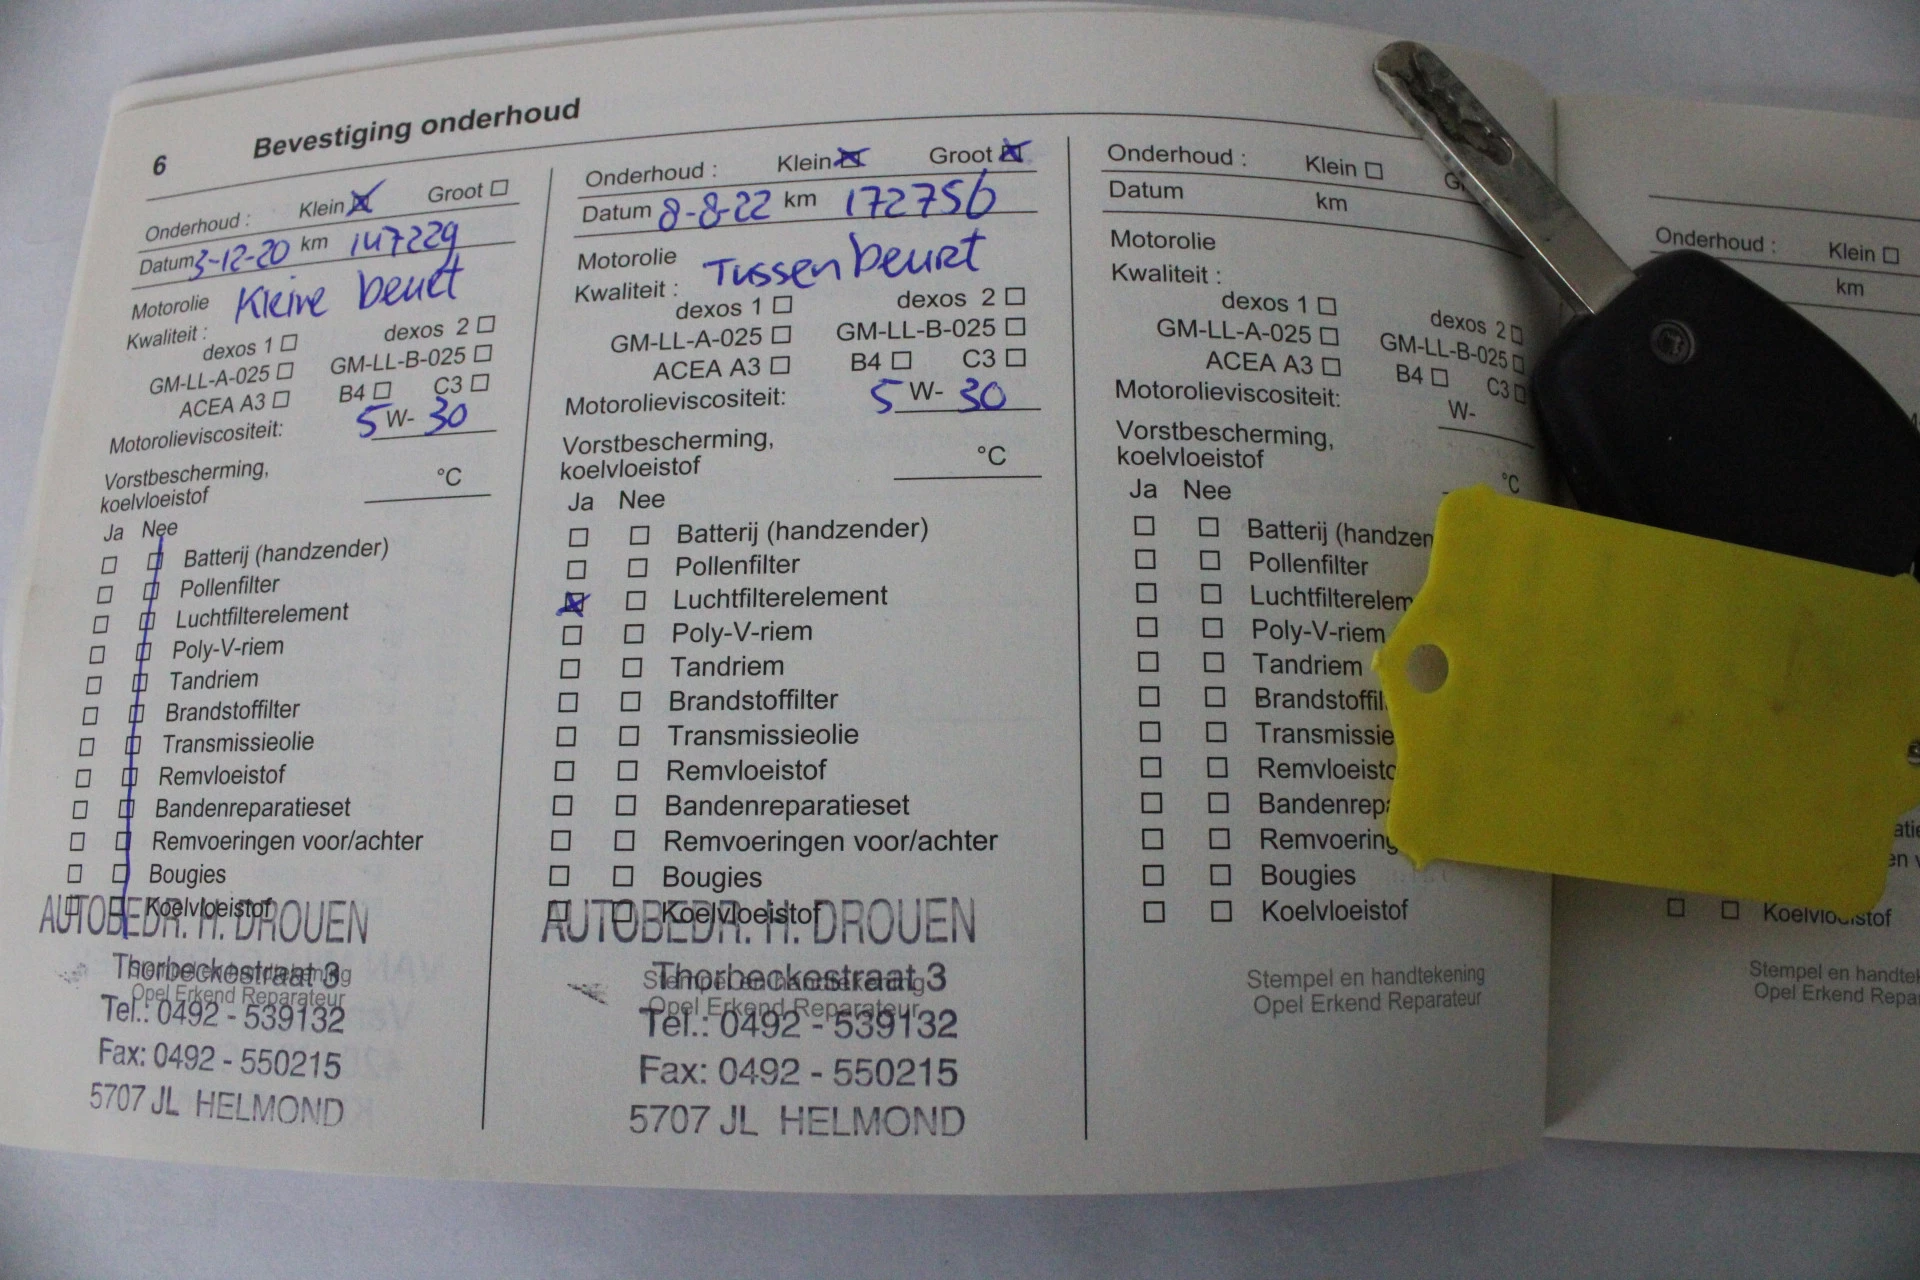 6 Bevestiging onderhoud
Onderhoud : Klein Groot
Datum 3-12-20 km 147229
Motorolie Kleine beurt
Kwaliteit :
dexos 1 dexos 2
GM-LL-A-025 GM-LL-B-025
ACEA A3 B4 C3
Motorolieviscositeit: 5 W- 30
Vorstbescherming,
koelvloeistof °C
Ja Nee
Batterij (handzender)
Pollenfilter
Luchtfilterelement
Poly-V-riem
Tandriem
Brandstoffilter
Transmissieolie
Remvloeistof
Bandenreparatieset
Remvoeringen voor/achter
Bougies
Koelvloeistof
AUTOBEDR. H. DROUEN
Thorbeckestraat 3
Stempel en handtekening
Opel Erkend Reparateur
Tel.: 0492 - 539132
Fax: 0492 - 550215
5707 JL HELMOND
Onderhoud : Klein Groot
Datum 8-8-22 km 172756
Motorolie Tussenbeurt
Kwaliteit :
dexos 1 dexos 2
GM-LL-A-025 GM-LL-B-025
ACEA A3 B4 C3
Motorolieviscositeit: 5 W- 30
Vorstbescherming,
koelvloeistof °C
Ja Nee
Batterij (handzender)
Pollenfilter
Luchtfilterelement
Poly-V-riem
Tandriem
Brandstoffilter
Transmissieolie
Remvloeistof
Bandenreparatieset
Remvoeringen voor/achter
Bougies
Koelvloeistof
AUTOBEDR. H. DROUEN
Thorbeckestraat 3
Stempel en handtekening
Opel Erkend Reparateur
Tel.: 0492 - 539132
Fax: 0492 - 550215
5707 JL HELMOND
Onderhoud : Klein G
Datum km
Motorolie
Kwaliteit :
dexos 1 dexos 2
GM-LL-A-025 GM-LL-B-025
ACEA A3 B4 C3
Motorolieviscositeit: W-
Vorstbescherming,
koelvloeistof °C
Ja Nee
Batterij (handzen
Pollenfilter
Luchtfilterelem
Poly-V-riem
Tandriem
Brandstoffil
Transmissie
Remvloeisto
Bandenrep
Remvoering
Bougies
Koelvloeistof
Stempel en handtekening
Opel Erkend Reparateur
Onderhoud : Klein
km
Koelvloeistof
Stempel en handtek
Opel Erkend Repa